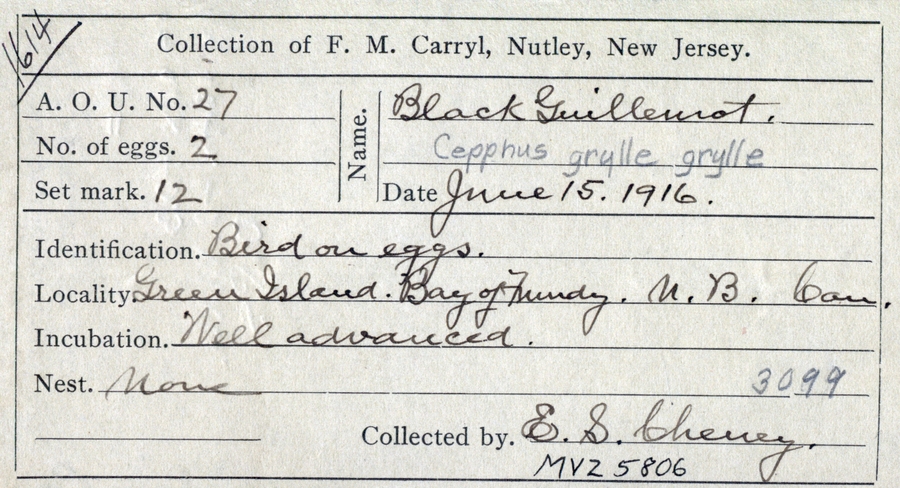 1614
Collection of F. M. Carryl, Nutley, New Jersey.
A. O. U. No. 27
No. of eggs. 2
Set mark. 12
Name. Black Guillemot.
Cepphus grylle grylle
Date June 15. 1916.
Identification. Bird on eggs.
Locality Green Island. Bay of Fundy. N. B. Can.
Incubation. Well advanced.
Nest. None
3099
Collected by. E. S. Cheney.
MVZ 5806